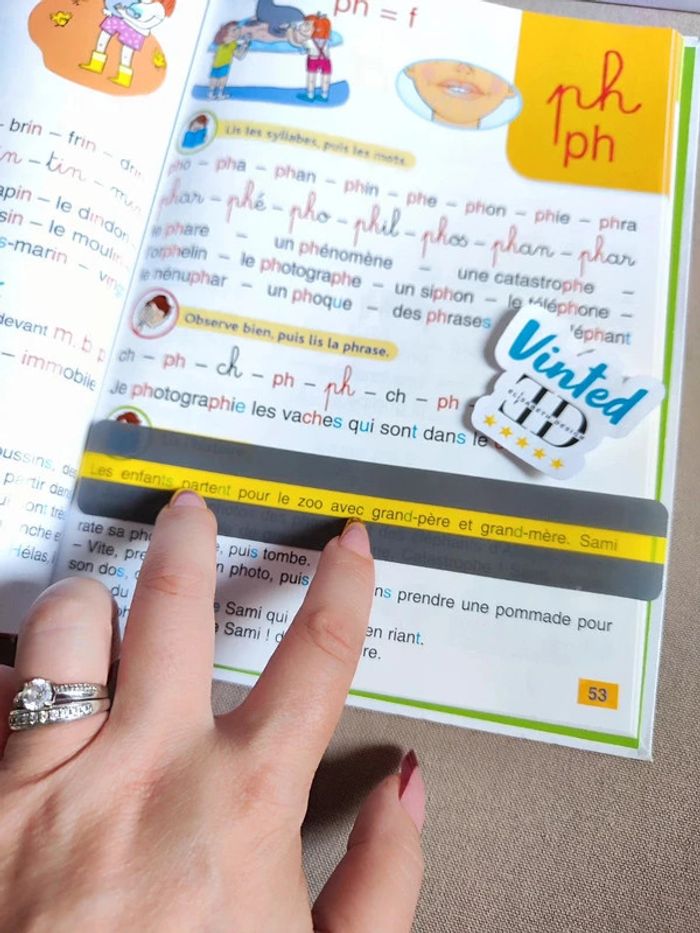 ph = f
ph
ph
Lis les syllabes, puis les mots.
pho – pha – phan – phin – phe – phon – phie – phra
phar – phé – pho – phil – phos – phan – phar
le phare – un phénomène – une catastrophe –
l'orphelin – le photographe – un siphon – le téléphone –
le nénuphar – un phoque – des phrases l'éphant
Observe bien, puis lis la phrase.
ch – ph – ch – ph – ph – ch – ph
Je photographie les vaches qui sont dans le
Lis l'histoire.
Les enfants partent pour le zoo avec grand-père et grand-mère. Sami
rate sa puis tombe.
– Vite, photo, puis prendre une pommade pour
son dos,
du Sami qui en riant.
Sami !
53
Vinted
ELISABETH DESIGN
brin – frin –
in – tin –
lapin – le dindon
le moulin
s-marin –
devant m, b, p
– immobile
poussins, des
partir dans
Hélas,